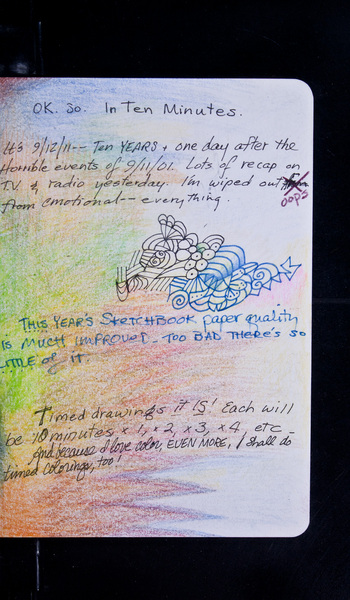 OK. So. In Ten Minutes.
It's 9/12/11-- Ten YEARS + one day after the
Horrible events of 9/11/01. Lots of recap on
T.V & radio yesterday. I'm wiped out
oops
from emotional-- everything.
THIS YEAR'S SKETCHBOOK paper quality
IS MUCH IMPROVED - TOO BAD THERE'S SO
LITTLE of IT.
Timed drawings it IS! Each will
be 10 minutes x 1, x 2, x 3, x 4, etc -
And because I love color, EVEN MORE, I shall do
timed colorings, too!